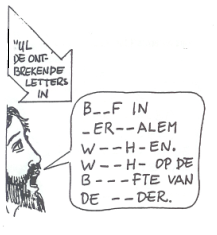 "VUL
DE ONT-
BREKENDE
LETTERS
IN
B__F IN
_ER--ALEM
W---H-EN.
W---H- OP DE
B----FTE VAN
DE --DER.